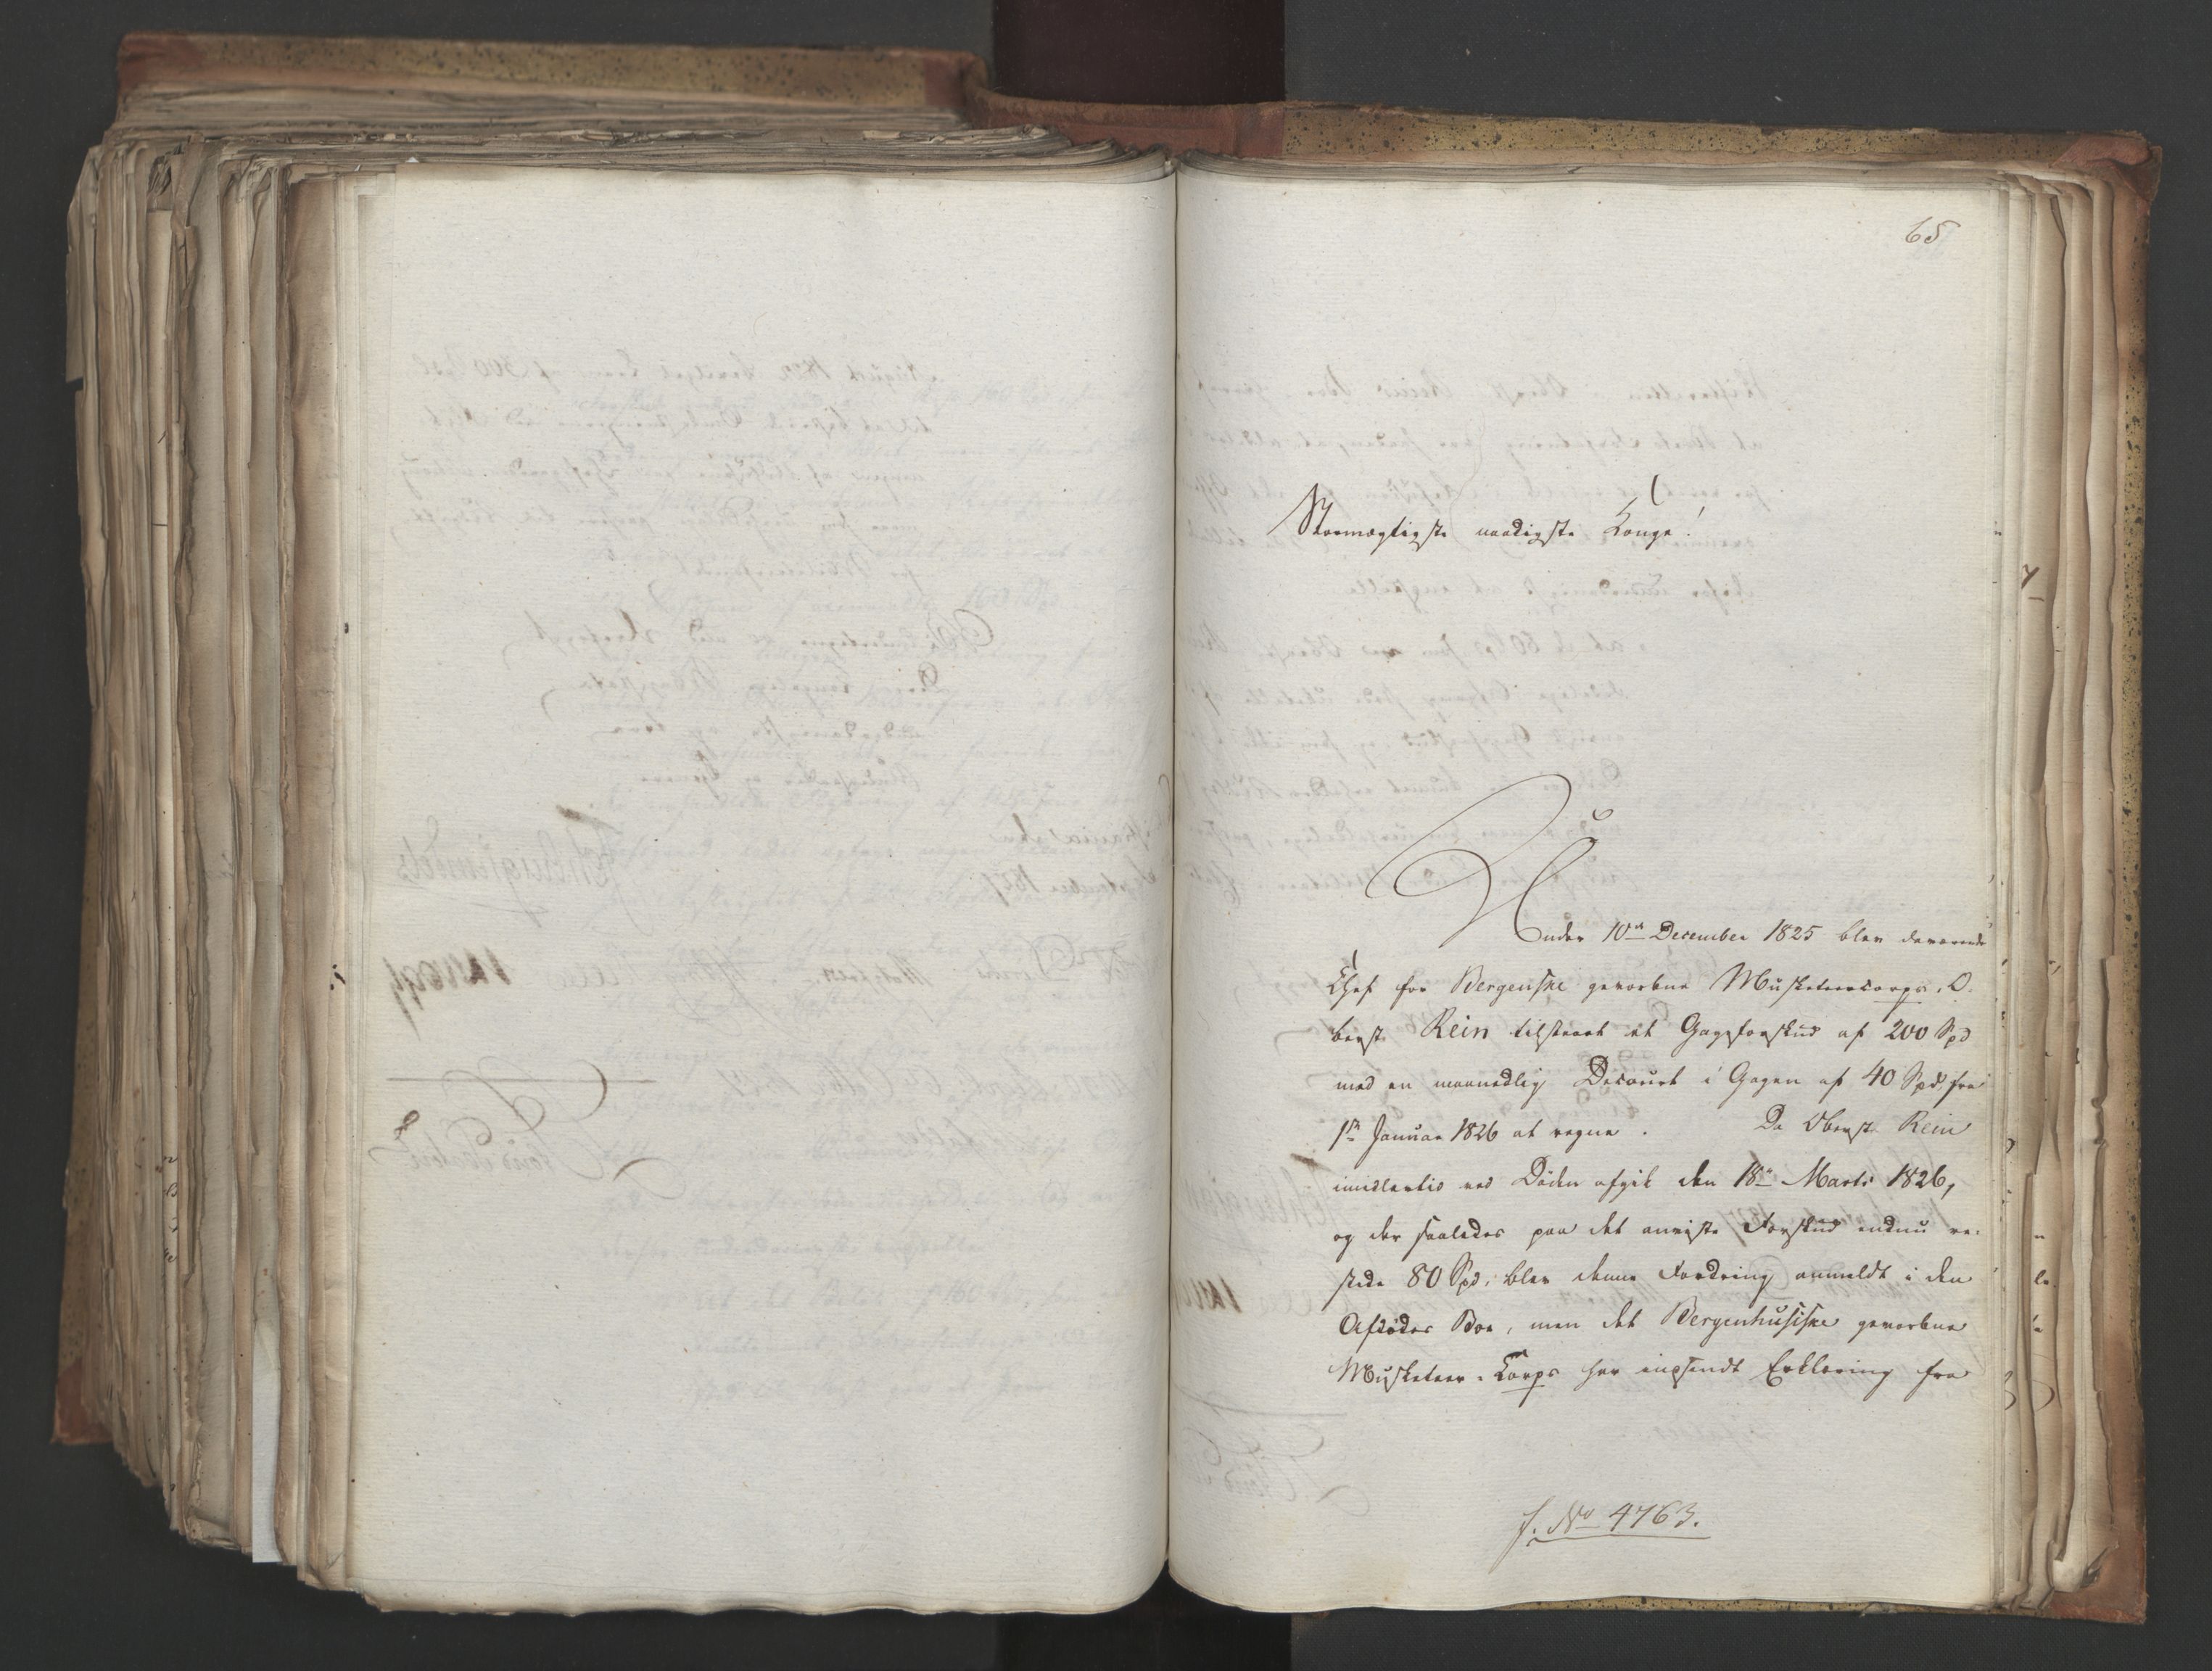 65
Stormægtigste naadigste Konge!
Under 10de December 1825 blev daværende
Chef for Bergenske gevorbne Musketeercorps, O-
berst Rein tilstaaet et Gageforskud af 200 Spd
med en maanedlig Decourt i Gagen af 40 Spd, fra
1ste Januar 1826 at regne. Da Oberst Rein
imidlertid ved Døden afgik den 18de Marts 1826,
og der saaledes paa det anviste Forskud endnu re-
stede 80 Spd, blev denne Fordring anmeldt i den
Afdødes Boe, men det Bergenhusiske gevorbne
Musketeer-Corps har indsendt Erklæring fra
J. No 4763.